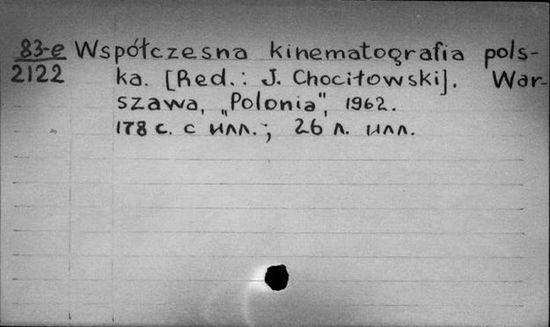 83-e Współczesna kinematografia pols-
2122 ka. [Red.: J. Chociłowski]. War-
szawa, „Polonia", 1962.
178 с. с илл.; 26 л. илл.